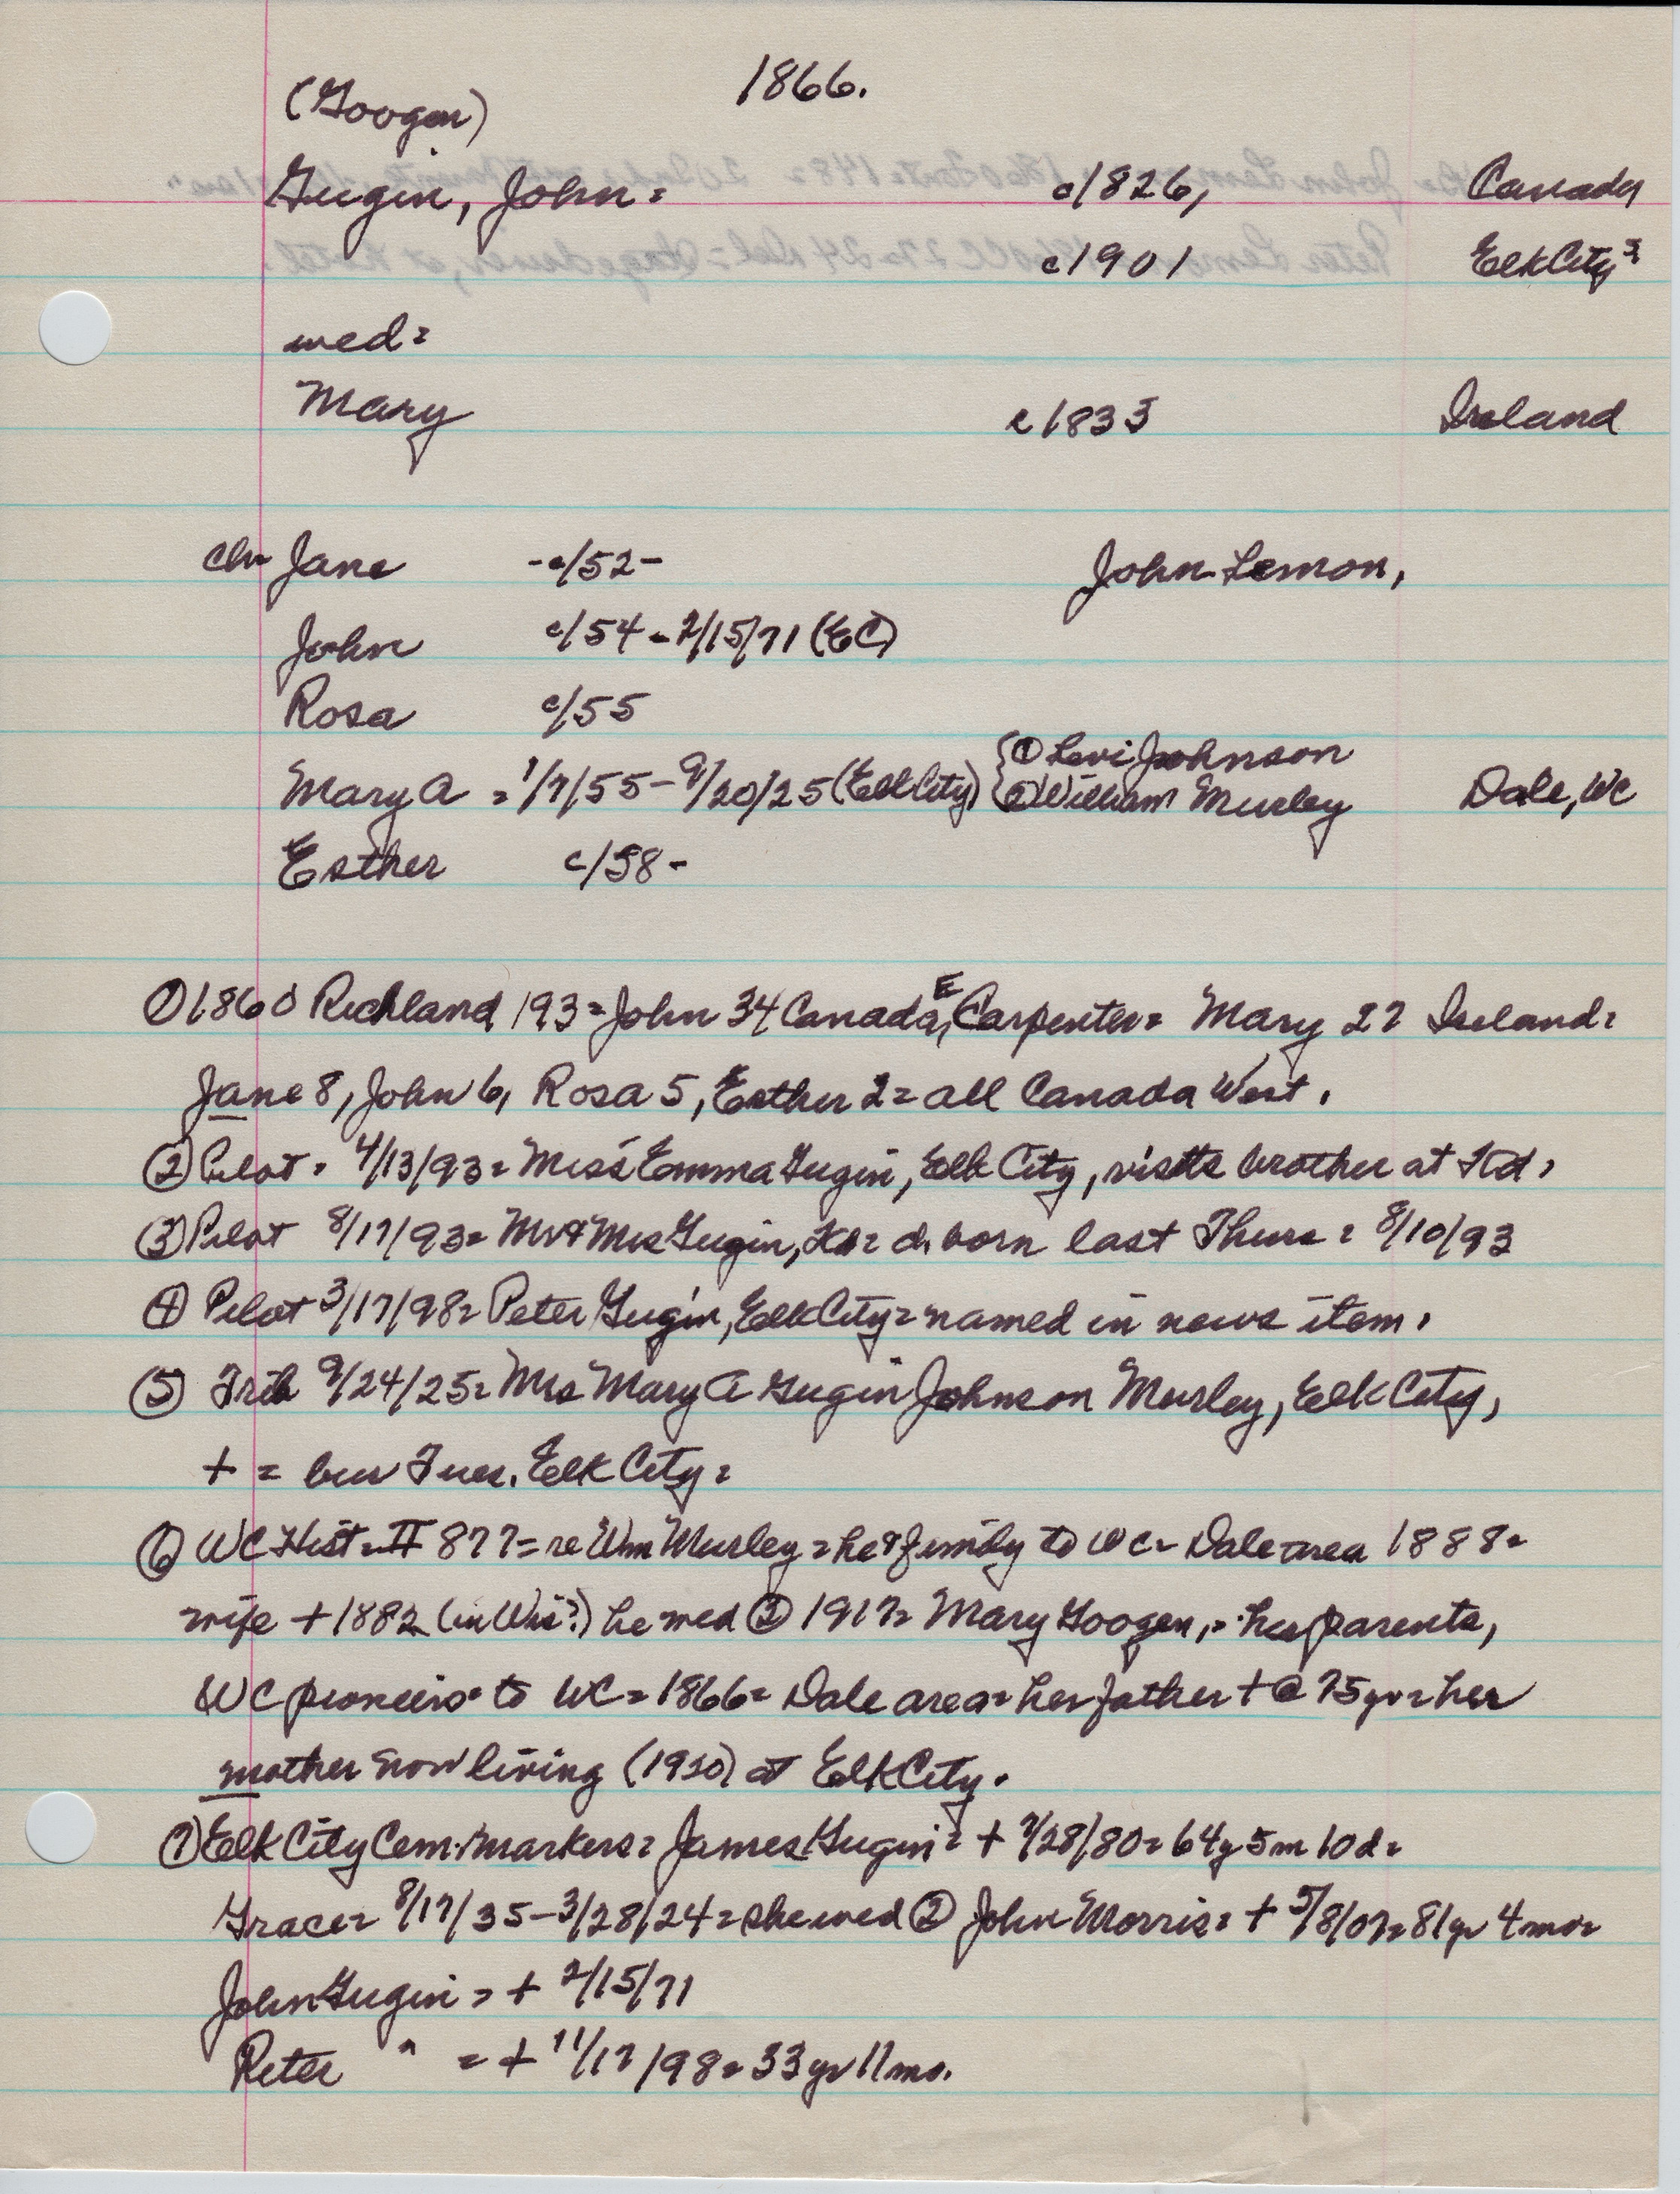 1866.
(Googen)
Gugin, John = c/1826, Canada
c1901 Elk City
med =
Mary c1833 Ireland
Chr Jane -c/52- John Lemon,
John c/54 - 2/15/71 (EC)
Rosa c/55
① Levi Johnson
Mary A = 1/7/55 - 9/20/25 (Elk City) ② William Murley Dale, WC
Esther c/58 -
① 1860 Richland 193 = John 34 Canada, E Carpenter = Mary 27 Ireland =
Jane 8, John 6, Rosa 5, Esther 2 = all Canada West.
② Pilot = 4/13/93 = Miss Emma Gugin, Elk City, visits brother at Kd,
③ Pilot 8/17/93 = Mr & Mrs Gugin, Kd = d. born last Thurs = 8/10/93
④ Pilot 3/17/98 = Peter Gugin, Elk City = named in news item.
⑤ Trib 9/24/25 = Mrs Mary A Gugin Johnson Murley, Elk City,
+ = bur Tues. Elk City =
⑥ WC Hist = II 877 = re Wm Murley = he & family to WC = Dale area 1888 =
wife + 1882 (in Wis?) he med ② 1917 = Mary Googen, = her parents,
WC pioneers = to WC = 1866 = Dale area = her father + @ 75 yr = her
mother now living (1920) at Elk City.
⑦ Elk City Cem. markers = James Gugin = + 7/28/80 = 64y 5m 10d =
Grace = 8/17/35 - 3/28/24 = she med ② John Morris = + 5/8/07 = 81 yr 4 mo =
John Gugin = + 2/15/71
Peter " = + 11/17/98 = 33 yr 11 mo.